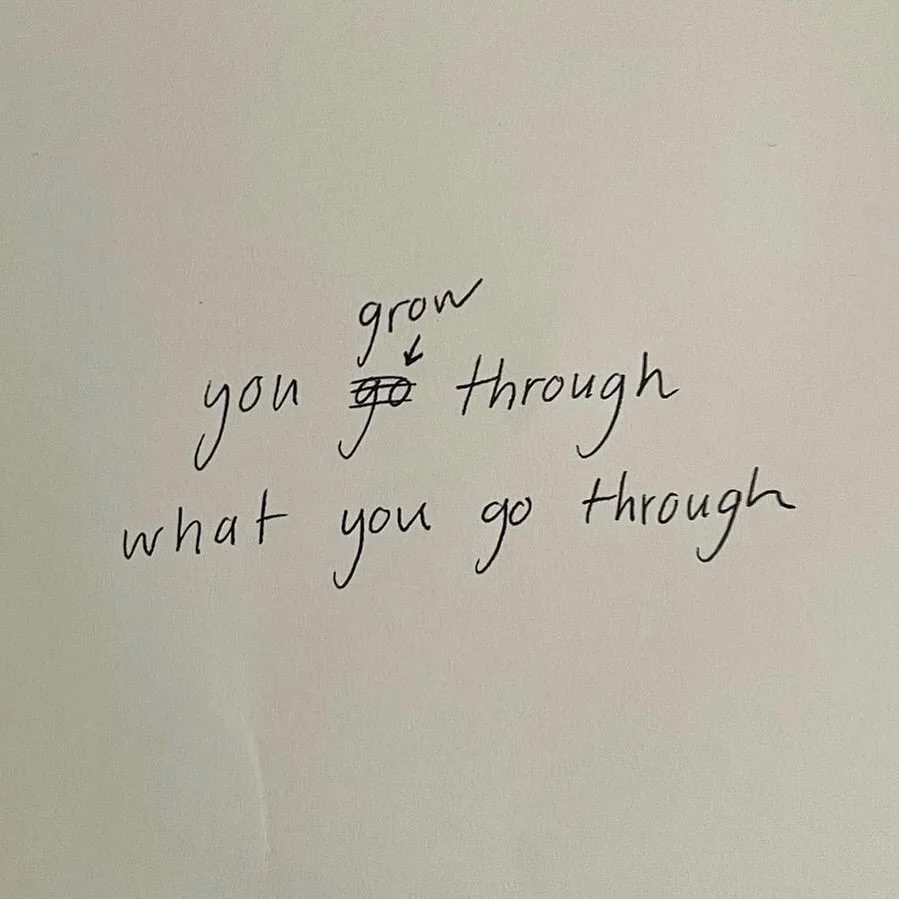 grow
you go through
what you go through